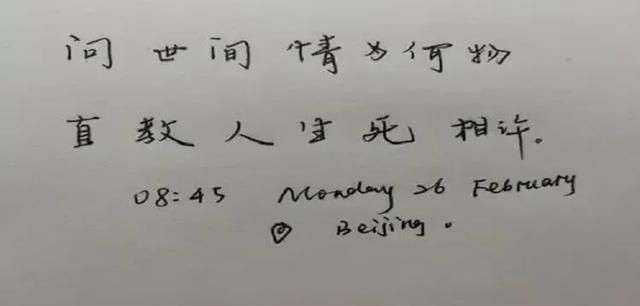 问世间情为何物
直教人生死相许.
08:45 Monday 26 February
Beijing.